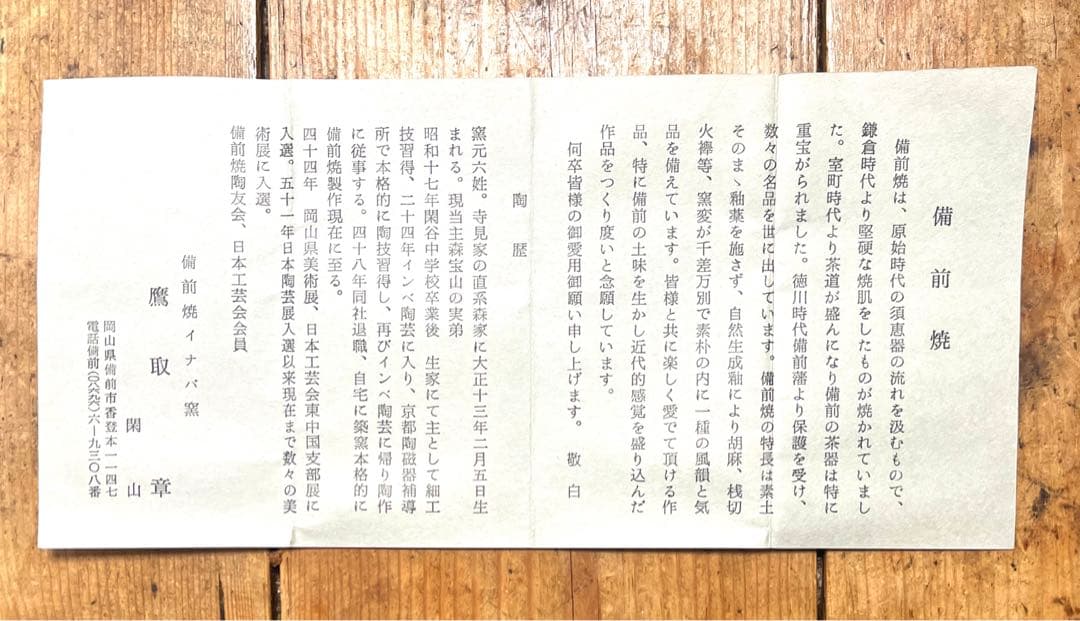 備前焼
備前焼は、原始時代の須恵器の流れを汲むもので、
鎌倉時代より堅硬な焼肌をしたものが焼かれていまし
た。室町時代より茶道が盛んになり備前の茶器は特に
重宝がられました。徳川時代備前藩より保護を受け、
数々の名品を世に出しています。備前焼の特長は素土
そのまゝ釉薬を施さず、自然生成釉により胡麻、桟切
火襷等、窯変が千差万別で素朴の内に一種の風韻と気
品を備えています。皆様と共に楽しく愛でて頂ける作
品、特に備前の土味を生かし近代的感覚を盛り込んだ
作品をつくり度いと念願しています。
何卒皆様の御愛用御願い申し上げます。 敬白
陶歴
窯元六姓。寺見家の直系森家に大正十三年二月五日生
まれる。現当主森宝山の実弟
昭和十七年閑谷中学校卒業後 生家にて主として細工
技習得、二十四年インベ陶芸に入り、京都陶磁器補導
所で本格的に陶技習得し、再びインベ陶芸に帰り陶作
に従事する。四十八年同社退職、自宅に築窯本格的に
備前焼製作現在に至る。
四十四年 岡山県美術展、日本工芸会東中国支部展に
入選。五十一年日本陶芸展入選以来現在まで数々の美
術展に入選。
備前焼陶友会、日本工芸会会員
備前焼イナバ窯
鷹取閑山
章
岡山県備前市香登本一一四七
電話備前(〇八六九六)六―九三〇八番